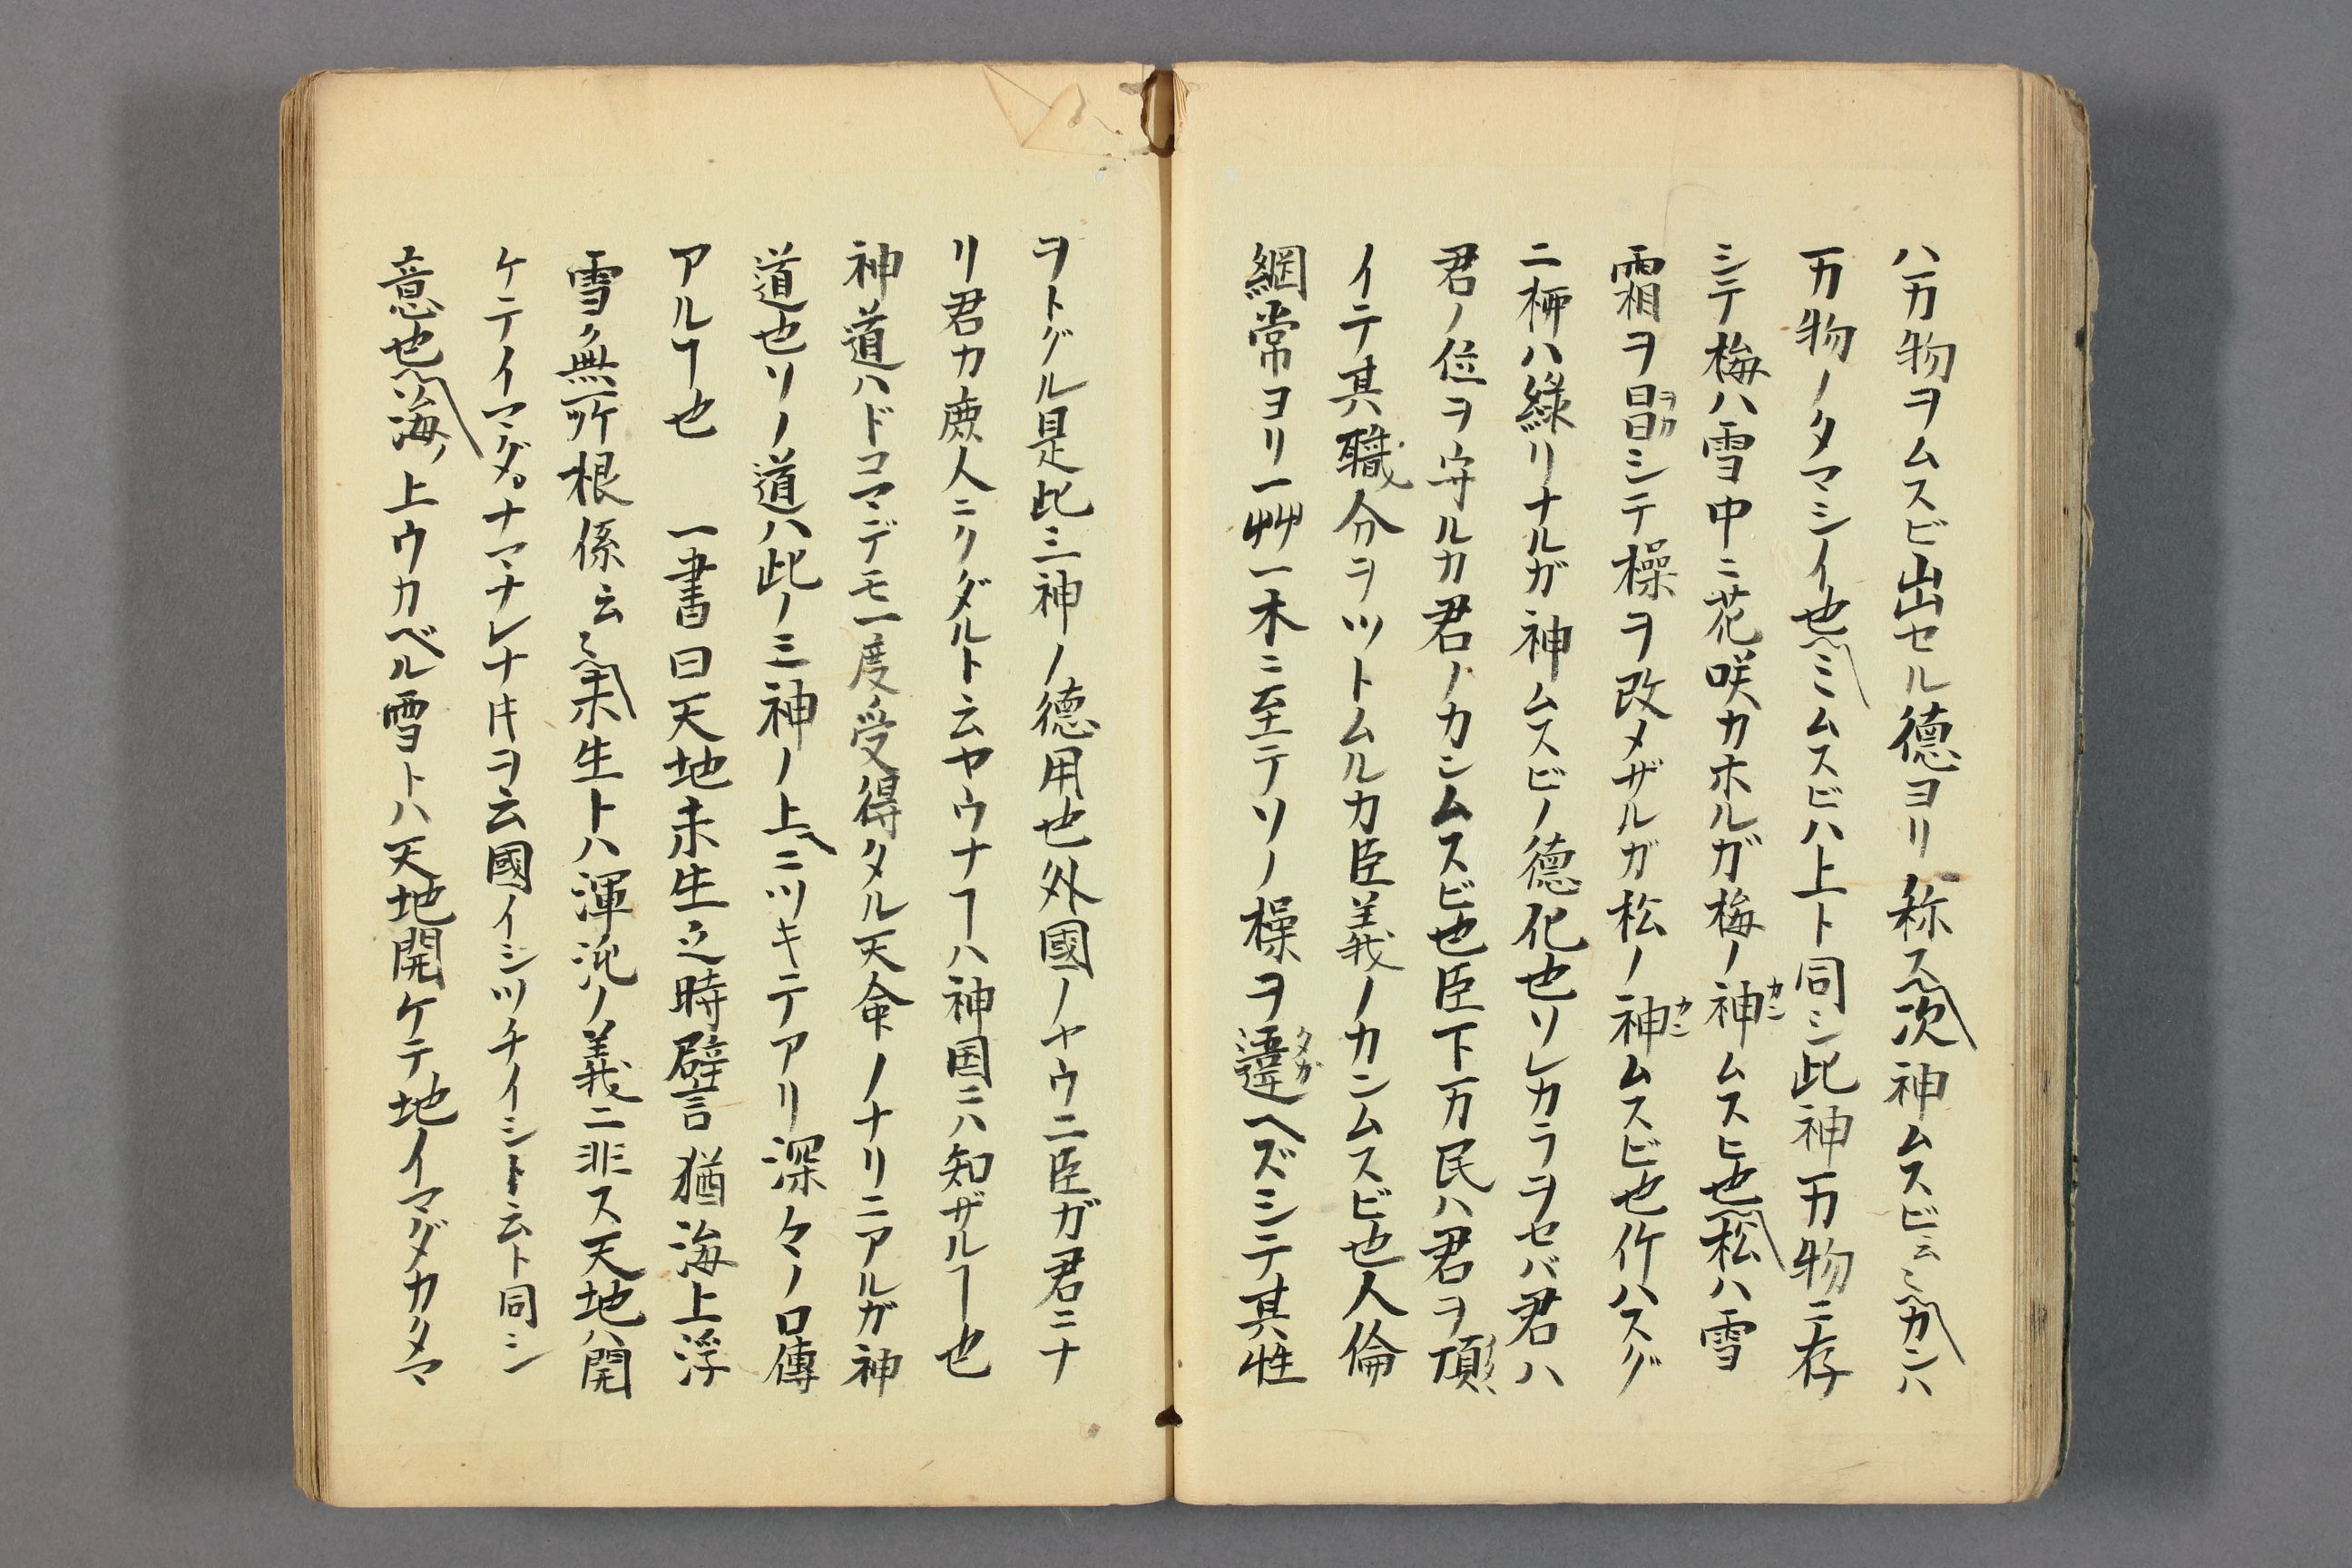 ハ万物ヲムスビ出セル徳ヨリ称ス次神ムスビ云〻カンハ
万物ノタマシイ也ミムスビハ上ト同シ此神万物ニ存
シテ梅ハ雪中ニ花咲カホルガ梅ノ神ムスヒ也松ハ雪
霜ヲ冒シテ操ヲ改メザルガ松ノ神ムスビ也竹ハスグ
ニ柳ハ緑リナルガ神ムスビノ徳化也ソレカラヲセバ君ハ
君ノ位ヲ守ルカ君ノカンムスビ也臣下万民ハ君ヲ頂
イテ其職分ヲツトムルカ臣義ノカンムスビ也人倫
綱常ヨリ一艸一木ニ至テソノ操ヲ違ヘズシテ其性
ヲトグル是此三神ノ徳用也外國ノヤウニ臣ガ君ニナ
リ君カ庶人ニクダルト云ヤウナヿハ神国ニハ知ザルヿ也
神道ハドコマデモ一度受得タル天命ノナリニアルガ神
道也ソノ道ハ此ノ三神ノ上ニツキテアリ深々ノ口傳
アルヿ也 一書曰天地未生之時譬猶海上浮
雪無所根係云〻未生トハ渾沌ノ義ニ非ス天地ハ開
ケテイマダナマナレナ𪜈ヲ云國イシツチイシト云ト同シ
意也海ノ上ウカベル雪トハ天地開ケテ地イマダカタマ